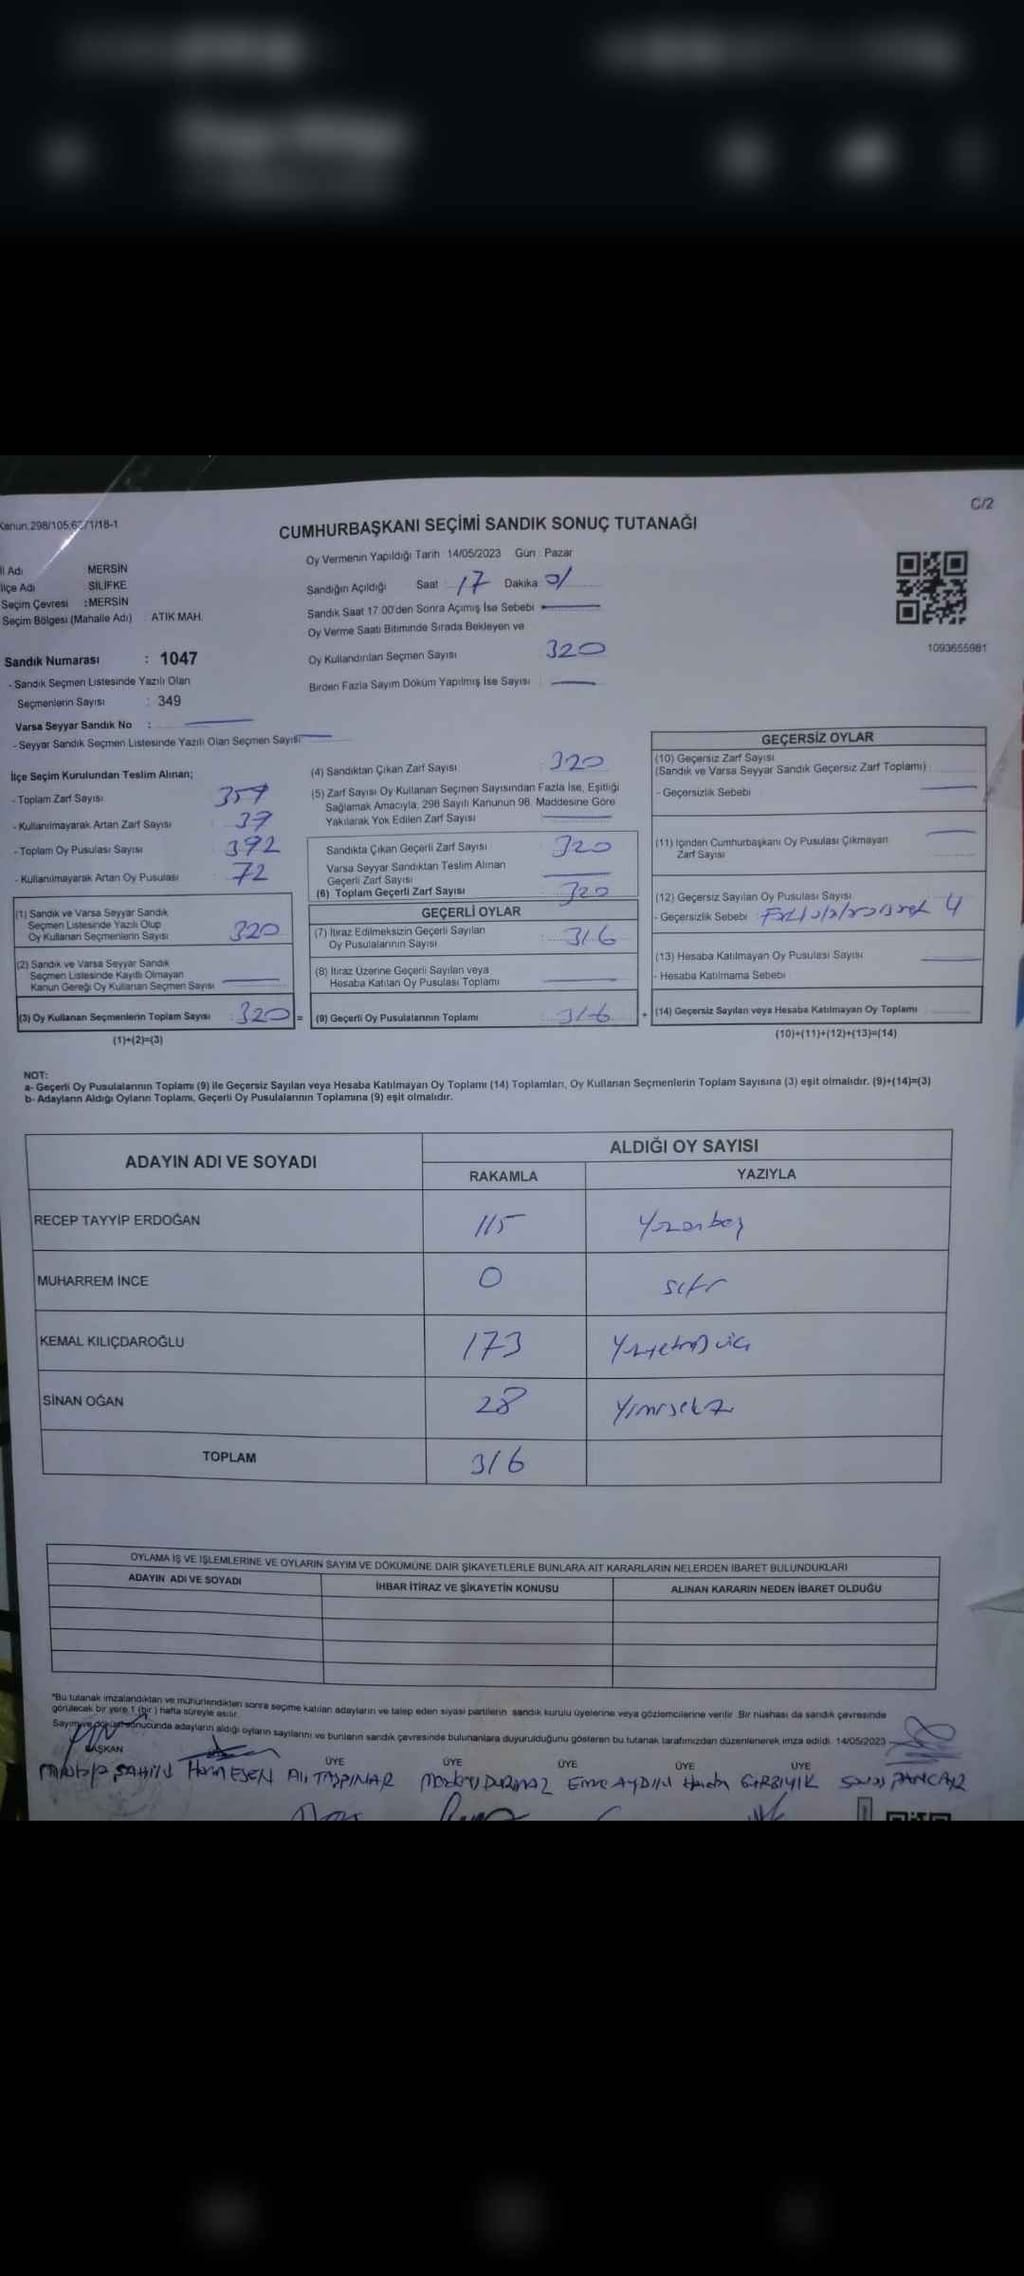 Kanun.298/105,62/1/18-1
C/2
CUMHURBAŞKANI SEÇİMİ SANDIK SONUÇ TUTANAĞI
İl Adı MERSİN
İlçe Adı SİLİFKE
Seçim Çevresi :MERSİN
Seçim Bölgesi (Mahalle Adı) ATİK MAH.
Oy Vermenin Yapıldığı Tarih 14/05/2023 Gün : Pazar
Sandığın Açıldığı Saat 17 Dakika 01
Sandık Saat 17.00'den Sonra Açılmış İse Sebebi
Oy Verme Saati Bitiminde Sırada Bekleyen ve
Oy Kullandırılan Seçmen Sayısı 320
Birden Fazla Sayım Döküm Yapılmış İse Sayısı
1093655981
Sandık Numarası : 1047
- Sandık Seçmen Listesinde Yazılı Olan
Seçmenlerin Sayısı : 349
Varsa Seyyar Sandık No :
- Seyyar Sandık Seçmen Listesinde Yazılı Olan Seçmen Sayısı:
İlçe Seçim Kurulundan Teslim Alınan;
- Toplam Zarf Sayısı 357
- Kullanılmayarak Artan Zarf Sayısı 37
- Toplam Oy Pusulası Sayısı 392
- Kullanılmayarak Artan Oy Pusulası 72
(1) Sandık ve Varsa Seyyar Sandık
Seçmen Listesinde Yazılı Olup
Oy Kullanan Seçmenlerin Sayısı 320
(2) Sandık ve Varsa Seyyar Sandık
Seçmen Listesinde Kayıtlı Olmayan
Kanun Gereği Oy Kullanan Seçmen Sayısı
(3) Oy Kullanan Seçmenlerin Toplam Sayısı : 320 =
(1)+(2)=(3)
(4) Sandıktan Çıkan Zarf Sayısı 320
(5) Zarf Sayısı Oy Kullanan Seçmen Sayısından Fazla İse, Eşitliği
Sağlamak Amacıyla, 298 Sayılı Kanunun 98. Maddesine Göre
Yakılarak Yok Edilen Zarf Sayısı
Sandıkta Çıkan Geçerli Zarf Sayısı 320
Varsa Seyyar Sandıktan Teslim Alınan
Geçerli Zarf Sayısı
(6) Toplam Geçerli Zarf Sayısı 320
GEÇERLİ OYLAR
(7) İtiraz Edilmeksizin Geçerli Sayılan
Oy Pusulalarının Sayısı : 316
(8) İtiraz Üzerine Geçerli Sayılan veya
Hesaba Katılan Oy Pusulası Toplamı
(9) Geçerli Oy Pusulalarının Toplamı 316 +
GEÇERSİZ OYLAR
(10) Geçersiz Zarf Sayısı
(Sandık ve Varsa Seyyar Sandık Geçersiz Zarf Toplamı)
- Geçersizlik Sebebi
(11) İçinden Cumhurbaşkanı Oy Pusulası Çıkmayan
Zarf Sayısı
(12) Geçersiz Sayılan Oy Pusulası Sayısı
- Geçersizlik Sebebi 4
(13) Hesaba Katılmayan Oy Pusulası Sayısı
- Hesaba Katılmama Sebebi
(14) Geçersiz Sayılan veya Hesaba Katılmayan Oy Toplamı
(10)+(11)+(12)+(13)=(14)
NOT:
a- Geçerli Oy Pusulalarının Toplamı (9) ile Geçersiz Sayılan veya Hesaba Katılmayan Oy Toplamı (14) Toplamları, Oy Kullanan Seçmenlerin Toplam Sayısına (3) eşit olmalıdır. (9)+(14)=(3)
b- Adayların Aldığı Oyların Toplamı, Geçerli Oy Pusulalarının Toplamına (9) eşit olmalıdır.
ADAYIN ADI VE SOYADI
ALDIĞI OY SAYISI
RAKAMLA YAZIYLA
RECEP TAYYİP ERDOĞAN 115 Yüzonbeş
MUHARREM İNCE 0 sıfır
KEMAL KILIÇDAROĞLU 173 Yüzyetmişüç
SİNAN OĞAN 28 Yirmisekiz
TOPLAM 316
OYLAMA İŞ VE İŞLEMLERİNE VE OYLARIN SAYIM VE DÖKÜMÜNE DAİR ŞİKAYETLERLE BUNLARA AİT KARARLARIN NELERDEN İBARET BULUNDUKLARI
ADAYIN ADI VE SOYADI İHBAR İTİRAZ VE ŞİKAYETİN KONUSU ALINAN KARARIN NEDEN İBARET OLDUĞU
*Bu tutanak imzalandıktan ve mühürlendikten sonra seçime katılan adayların ve talep eden siyasi partilerin sandık kurulu üyelerine veya gözlemcilerine verilir. Bir nüshası da sandık çevresinde
görülecek bir yere 1 (bir) hafta süreyle asılır.
Sayım ve döküm sonucunda adayların aldığı oyların sayılarını ve bunların sandık çevresinde bulunanlara duyurulduğunu gösteren bu tutanak tarafımızdan düzenlenerek imza edildi. 14/05/2023
BAŞKAN ÜYE ÜYE ÜYE ÜYE ÜYE
ŞAHİN ESEN Ali TAŞPINAR DURMAZ Emre AYDIN GÜRBIYIK PANCAR